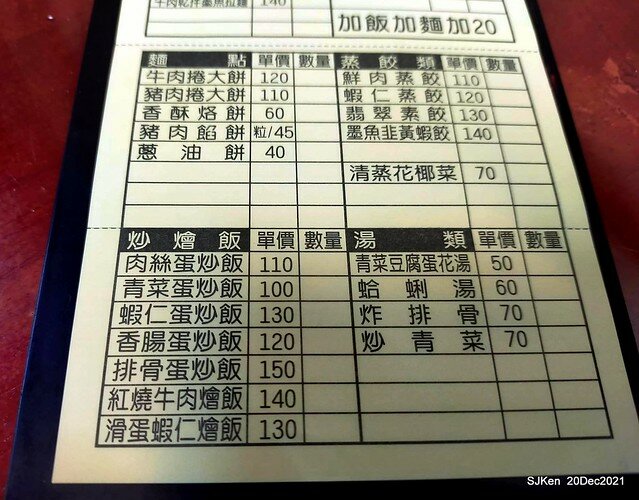 牛肉乾拌墨魚拉麵 140
加飯加麵加20
麵點 單價 數量 蒸餃類 單價 數量
牛肉捲大餅 120 鮮肉蒸餃 110
豬肉捲大餅 110 蝦仁蒸餃 120
香酥烙餅 60 翡翠素餃 130
豬肉餡餅 粒/45 墨魚韭黃蝦餃 140
蔥油餅 40
清蒸花椰菜 70
炒燴飯 單價 數量 湯類 單價 數量
肉絲蛋炒飯 110 青菜豆腐蛋花湯 50
青菜蛋炒飯 100 蛤蜊湯 60
蝦仁蛋炒飯 130 炸排骨 70
香腸蛋炒飯 120 炒青菜 70
排骨蛋炒飯 150
紅燒牛肉燴飯 140
滑蛋蝦仁燴飯 130
SJKen 20Dec2021